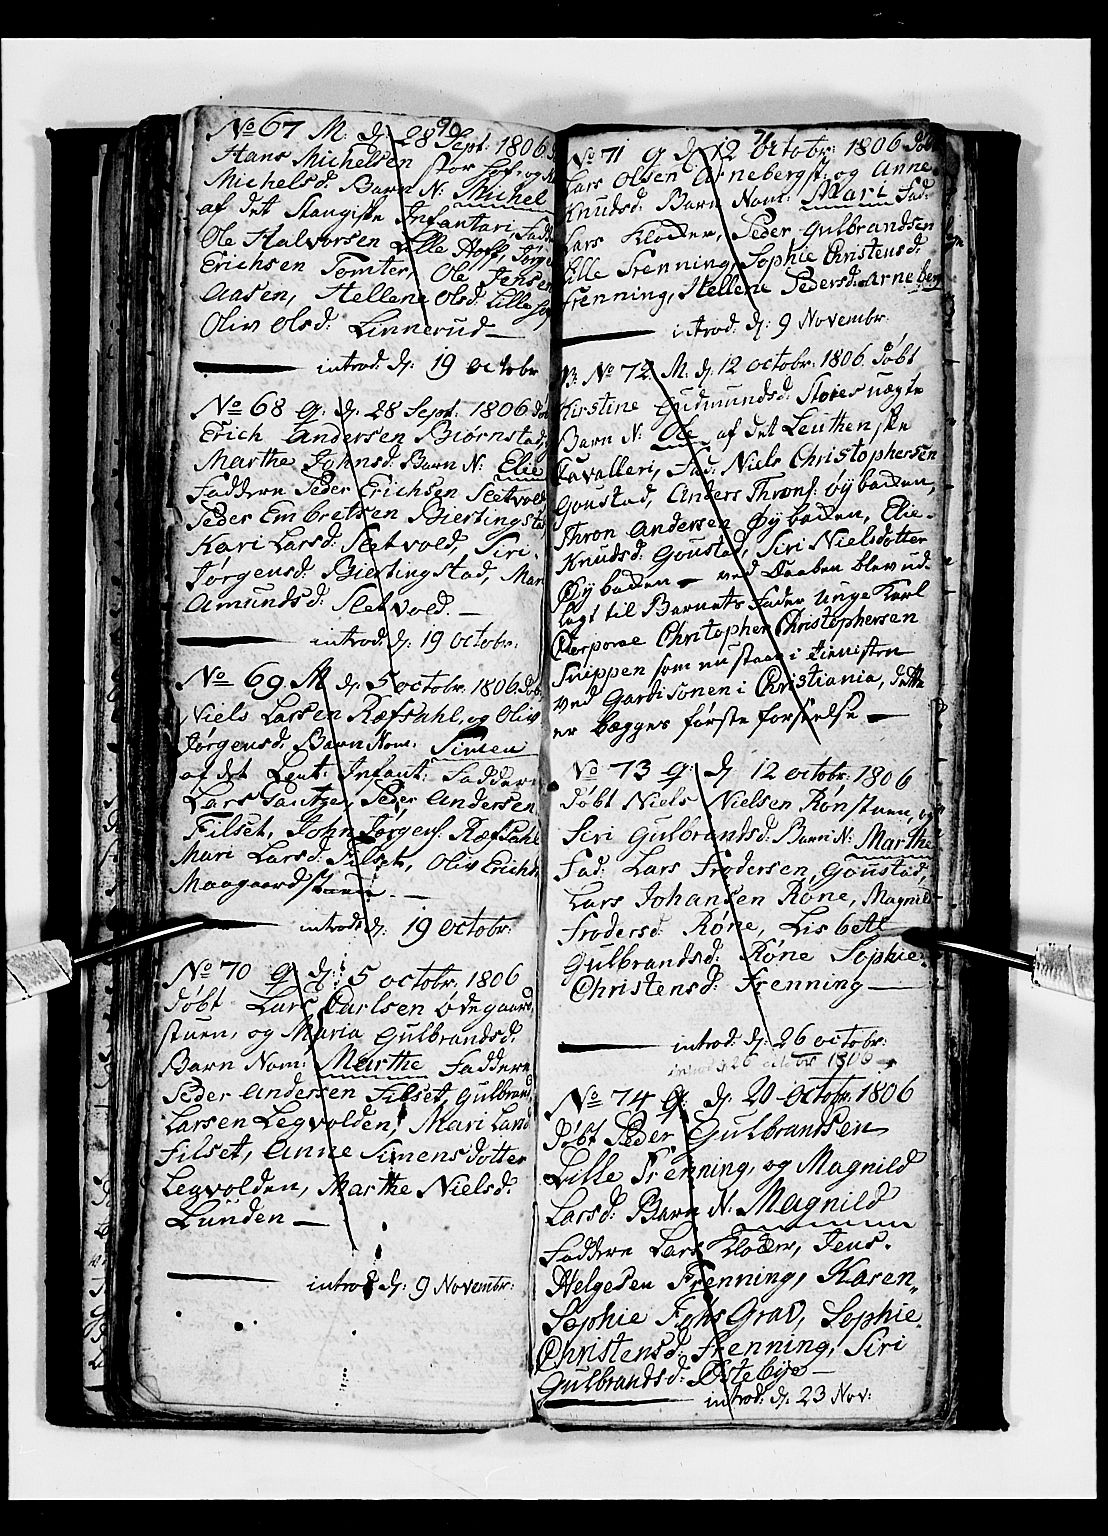 90
No 67 M. d: 28 Sept: 1806.
Hans Michelsen Stor Hof, og
Michelsd: Barn N: Michel
af det Stangiske Infantari, Fadd
Ole Halvorsen Lille Hoff, Jørg
Erichsen Tomter, Ole Jensen
Aasen, Hellene Olsd: Lille
Oliv Olsd: Linnerud —
introd. d: 19 octobr
No 68 q. d: 28 Sept: 1806 dø
Erich Andersen Biørnstad,
Marthe Johnsd: Barn N: Elie
Faddere Peder Erichsen Sletvold
Peder Embretsen Biertingstad
Kari Larsd: Sletvold, Siri
Jørgensd: Biertingstad, Mar
Amundsd: Sletvold. —
introd: d: 19 octobr:
No 69 M d: 5 octobr. 1806. døb
Niels Larsen Ræfsahl, og Oliv
Jørgensd: Barn Nom: Simen
af det Leut: Infant: Faddere
Lars Pantze, Peder Andersen
Filset, John Jørgens: Ræfsahl
Mari Larsd: Filset, Oliv Erichs
Maagaardstuen —
introd: d: 19 octobr:
No 70 q d: 5 octobr. 1806
døbt Lars Carlsen ødegaard
stuen, og Maria Gulbrandsd:
Barn Nom: Marthe Faddere
Peder Andersen Filset, Gulbrand
Larsen Legvolden, Mari Land
Filset, Anne Simensdotter
Legvolden, Marthe Nielsd:
Lunden —
introd d: 9 Novembr:
71
No 71 q d: 12 octobr: 1806 døbt
Lars Olsen Arnebergst: og Anne
Knudsd: Barn Nom: Mari Fad:
Lars Kloder, Peder Gulbrandsen
Lille Frenning, Sophie Christensd:
Frenning, Hellene Pedersd: Arneberg
introd: d: 9 Novembr.
No 72 M. d: 12 octobr: 1806 døbt
Kirstine Gudmundsd: Stores uægte
Barn N: Ole af det Leuthenske
Cavalleri, Fad: Niels Christophersen
Goustad, Anders Throns: øybacken,
Thron Andersen Øybacken, Elie
Knudsd: Goustad, Siri Nielsdotter
Øybacken — ved Daaben blev ud-
lagt til Barnets Fader Unge Karl
Corporal Christopher Christophersen
Snippen som nu staar i tienisten
ved Gardisonen i Christiania, dette
er bægges første forseelse —
No 73 q: d 12 octobr: 1806
døbt Niels Nielsen Rønstuen, og
Siri Gulbrandsd: Barn N: Marthe
Fad: Lars Frodersen, Goustad,
Lars Johansen Røne, Magnild
Frodersd: Røne, Lisbeth
Gulbrandsd: Røne Sophie
Christensd: Frenning —
introd: d: 26 octobr:
introd d 26 octobr 1806
No 74 q. d: 20 octobr: 1806
døbt Peder Gulbrandsen
Lille Frenning, og Magnild
Larsd: Barn N: Magnild
Faddere Lars Kloder, Jens
Helgesen Frenning, Karen
Sophie Grav, Sophie
Christensd: Frenning, Siri
Gulbrandsd: Østebye —
introd: d: 23 Nov: